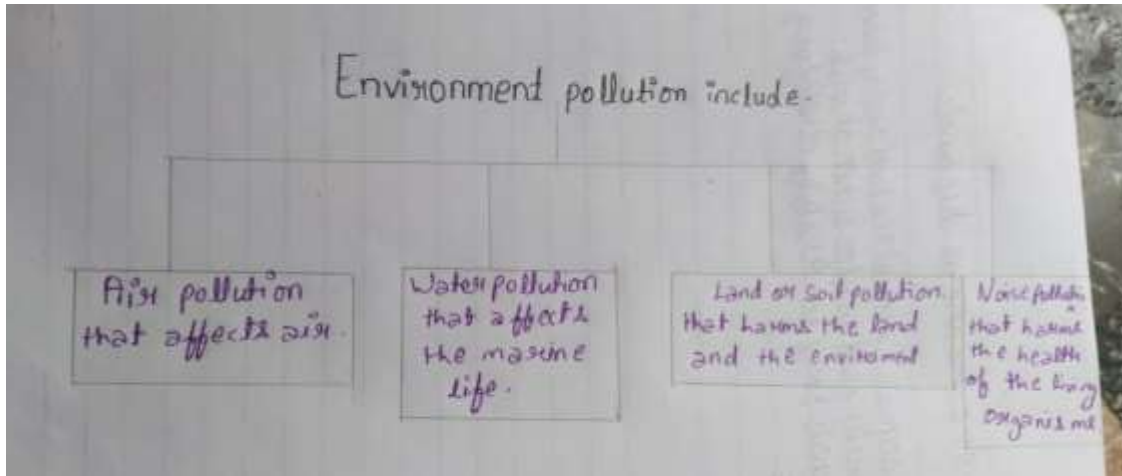 Environment pollution include.
Air pollution
that affects air.
Water pollution
that affects
the marine
life.
Land or soil pollution.
that harms the land
and the enviroment
Noise pollution
that harms
the health
of the living
organisms